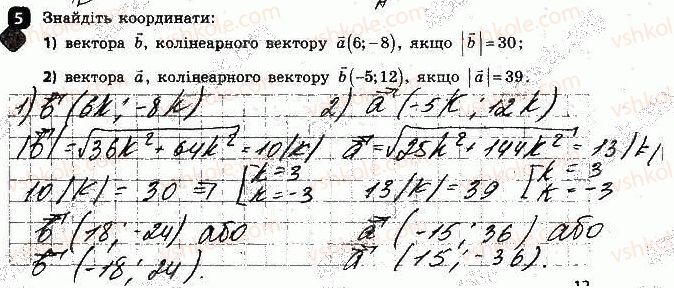 5 Знайдіть координати:
1) вектора b⃗, колінеарного вектору a⃗(6;−8), якщо |b⃗|=30;
2) вектора a⃗, колінеарного вектору b⃗(−5;12), якщо |a⃗|=39.
1) b⃗ (6k; −8k)
|b⃗| = √36k² + 64k² = 10|k|
10|k| = 30 ⇒ [k = 3
k = −3
b⃗ (18; −24) або
b⃗ (−18; 24).
2) a⃗ (−5k; 12k)
a⃗ = √25k² + 144k² = 13|k|
13|k| = 39 [k = 3
k = −3
a⃗ (−15; 36) або
a⃗ (15; −36).